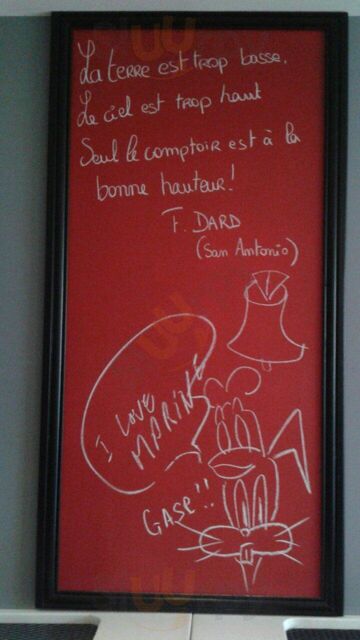 La terre est trop basse.
Le ciel est trop haut
Seul le comptoir est à la
bonne hauteur!
F. DARD
(San Antonio)
I LOVE
MARINE
GASE!!